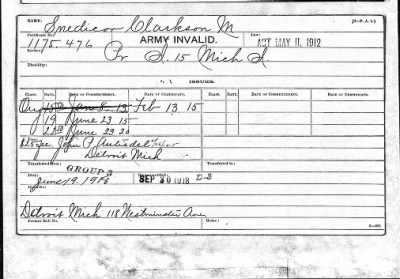 [3-P. A. G.]
NAME: Snedicor Clarkson M
Certificate No.: ARMY INVALID. Law: ACT MAY 11, 1912
1175.476 Pr. I. 15 Mich I.
Disability:
ISSUES.
CLASS. RATE. DATE OF COMMENCEMENT. DATE OF CERTIFICATE. CLASS. RATE. DATE OF COMMENCEMENT. DATE OF CERTIFICATE.
Orig 15 Jan 8 13 Feb 13 15
19 June 23 15
22.50 June 23 20
John P.
Detroit Mich
Transferred to: GROUP 3 Transferred from:
Died: June 19, 1916 SEP 30 1918 D-3
Detroit Mich 118 Westminster Ave
Former Roll No. Home: